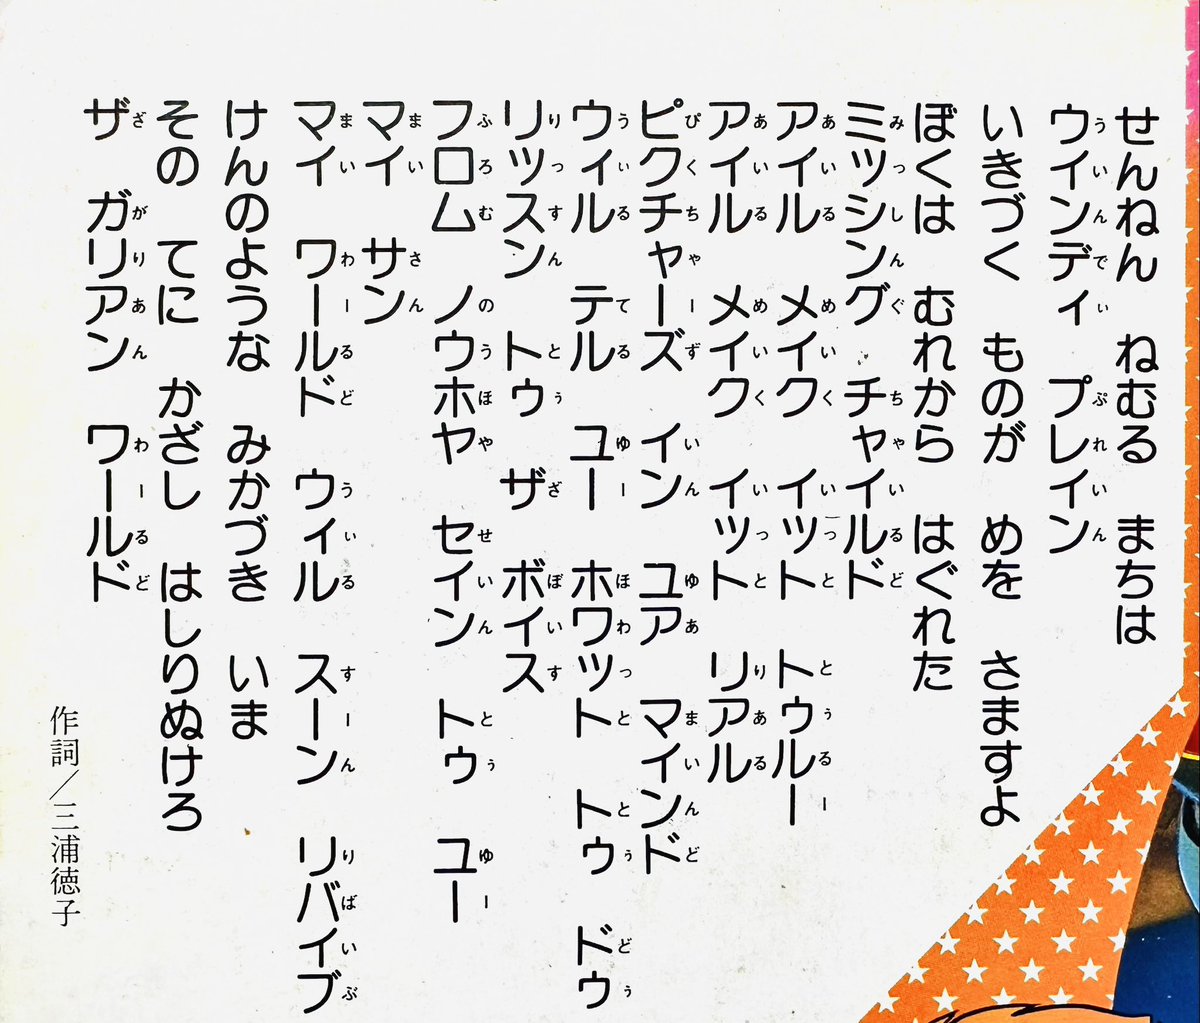 せんねん ねむる まちは
ウインディ プレイン
いきづく ものが めを さますよ
ぼくは むれから はぐれた
ミッシング チャイルド
アイル メイク イット トゥルー
アイル メイク イット リアル
ピクチャーズ イン ユア マインド
ウィル テル ユー ホワット トゥ ドゥ
リッスン トゥ ザ ボイス
フロム ノウホヤ セイン トゥ ユー
マイ サン
マイ ワールド ウィル スーン リバイブ
けんのような みかづき いま
その てに かざし はしりぬけろ
ザ ガリアン ワールド
作詞／三浦徳子